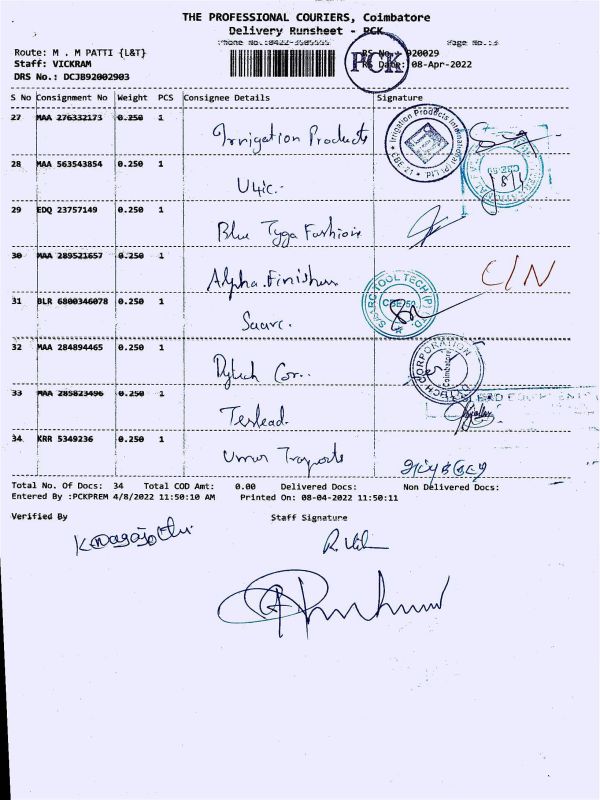 THE PROFESSIONAL COURIERS, Coimbatore
Delivery Runsheet - PCK
Phone No.:0422-3505555 Page No.:3
Route: M . M PATTI {L&T} RS No.: 920029
Staff: VICKRAM RS Date: 08-Apr-2022
DRS No.: DCJB92002903
PCK
S No Consignment No Weight PCS Consignee Details Signature
27 MAA 276332173 0.250 1 Irrigation Products
28 MAA 563543854 0.250 1 U4ic.-
29 EDQ 23757149 0.250 1 Blue Tyga Fashion
30 MAA 289521657 0.250 1 Alpha Finishers C/N
31 BLR 6800346078 0.250 1 Saarc.
32 MAA 284894465 0.250 1 Dytech Cor..
33 MAA 285823496 0.250 1 Teslead.
34 KRR 5349236 0.250 1
Irrigation Products International (P) Ltd.
CBE 21
SAARC TOOL TECH (P) LTD.
CBE-62
DYTECH CORPORATION
Coimbatore
Total No. Of Docs: 34 Total COD Amt: 0.00 Delivered Docs: Non Delivered Docs:
Entered By :PCKPREM 4/8/2022 11:50:10 AM Printed On: 08-04-2022 11:50:11
Verified By Staff Signature